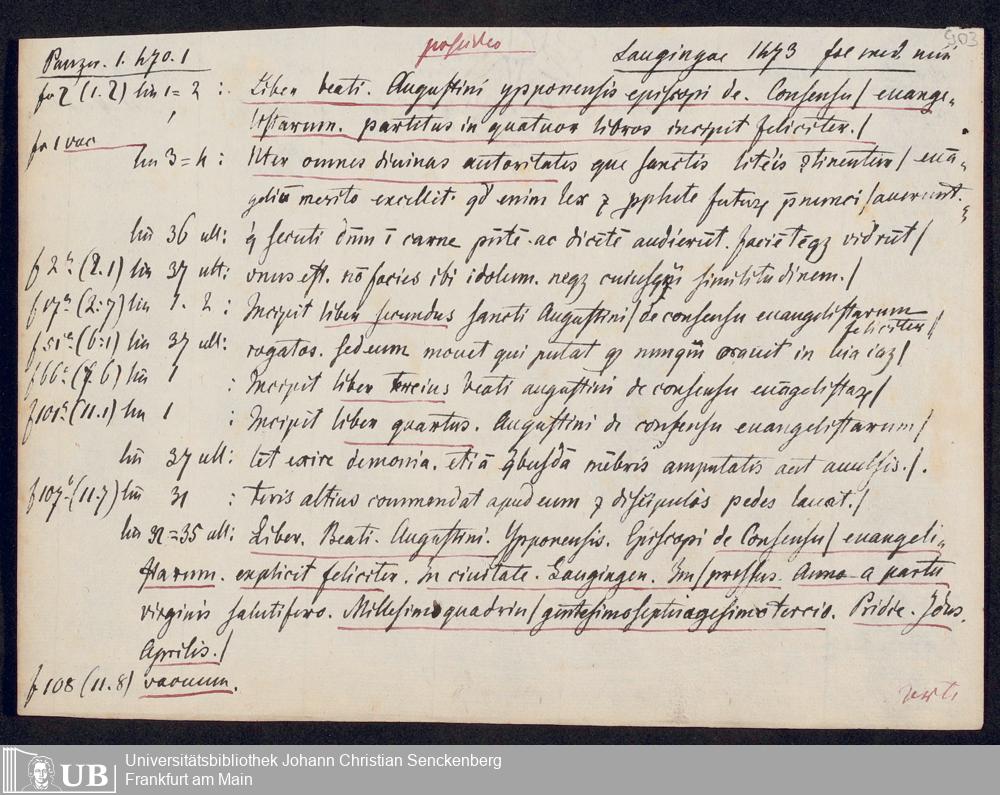 903
Panzer. 1. 470. 1 possideo Laugingae 1473 fol med min
f 2 (1.2) lin 1=2 : Liber beati. Augustini ypponensis episcopi de. Consensu/ euange-
listarum. partitus in quatuor libros incipit feliciter./
f 1 vac
lin 3=4 : Nter omnes diuinas autoritates que sanctis litēis ꝯtinentur/ euā-
geliū merito excellit. qd enim lex ⁊ pphete futurꝝ p̄nunci/auerunt.
lin 36 ult: secuti dūm ī carne dicētē audierūt. facietēqꝫ vidrūt/
f 2b (2.1) lin 37 ult: vnus est. nō facies ibi idolum. neqꝫ similitudinem./
f 17a (2.7) lin 1. 2 : Incipit liber secundus sancti Augustini/ de consensu euangelistarum
feliciter/
f 51a (6.1) lin 37 ult: rogatos. sed eum mouet qui putat in
f 66a (7.6) lin 1 : Incipit liber tercius beati augustini de consensu euāgelistaꝝ/
f 101a (11.1) lin 1 : Incipit liber quartus. Augustini de consensu euangelistarum/
lin 37 ult: lēt exire demonia. etiā qbusdā mēbris amputatis aut auulsis./.
f 107b (11.7) lin 31 : teris altius commendat apud eum ⁊ discipulos pedes lauat./
lin 32=35 ult: Liber. Beati. Augustini. Ypponensis. Episcopi de Consensu/ euangeli-
starum. explicit feliciter. in ciuitate. Laugingen. Im/pressus. Anno a partu
virginis salutifero. Millesimoquadrin/gentesimoseptuagesimotercio. Pridie. Idus.
Aprilis./
f 108 (11.8) vacuum.
verte
UB
Universitätsbibliothek Johann Christian Senckenberg
Frankfurt am Main